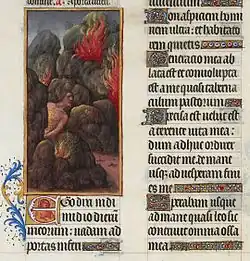 Ego dixi in di
midio dierū
meorum: uadam ad
portas inferi
Non aspiciam homi
nem ultra: et habitato
rem quietis
Generatio mea ab
lata est et conuoluta
est a me quasi taberna
culum pastorum
Precisa est uelut es
a texente uita mea:
dum adhuc ordirer
succidit me de mane
usq ad uesperam fini
es me
Sperabam usque
ad mane quasi leo sic
contriuit omnia ossa
mea